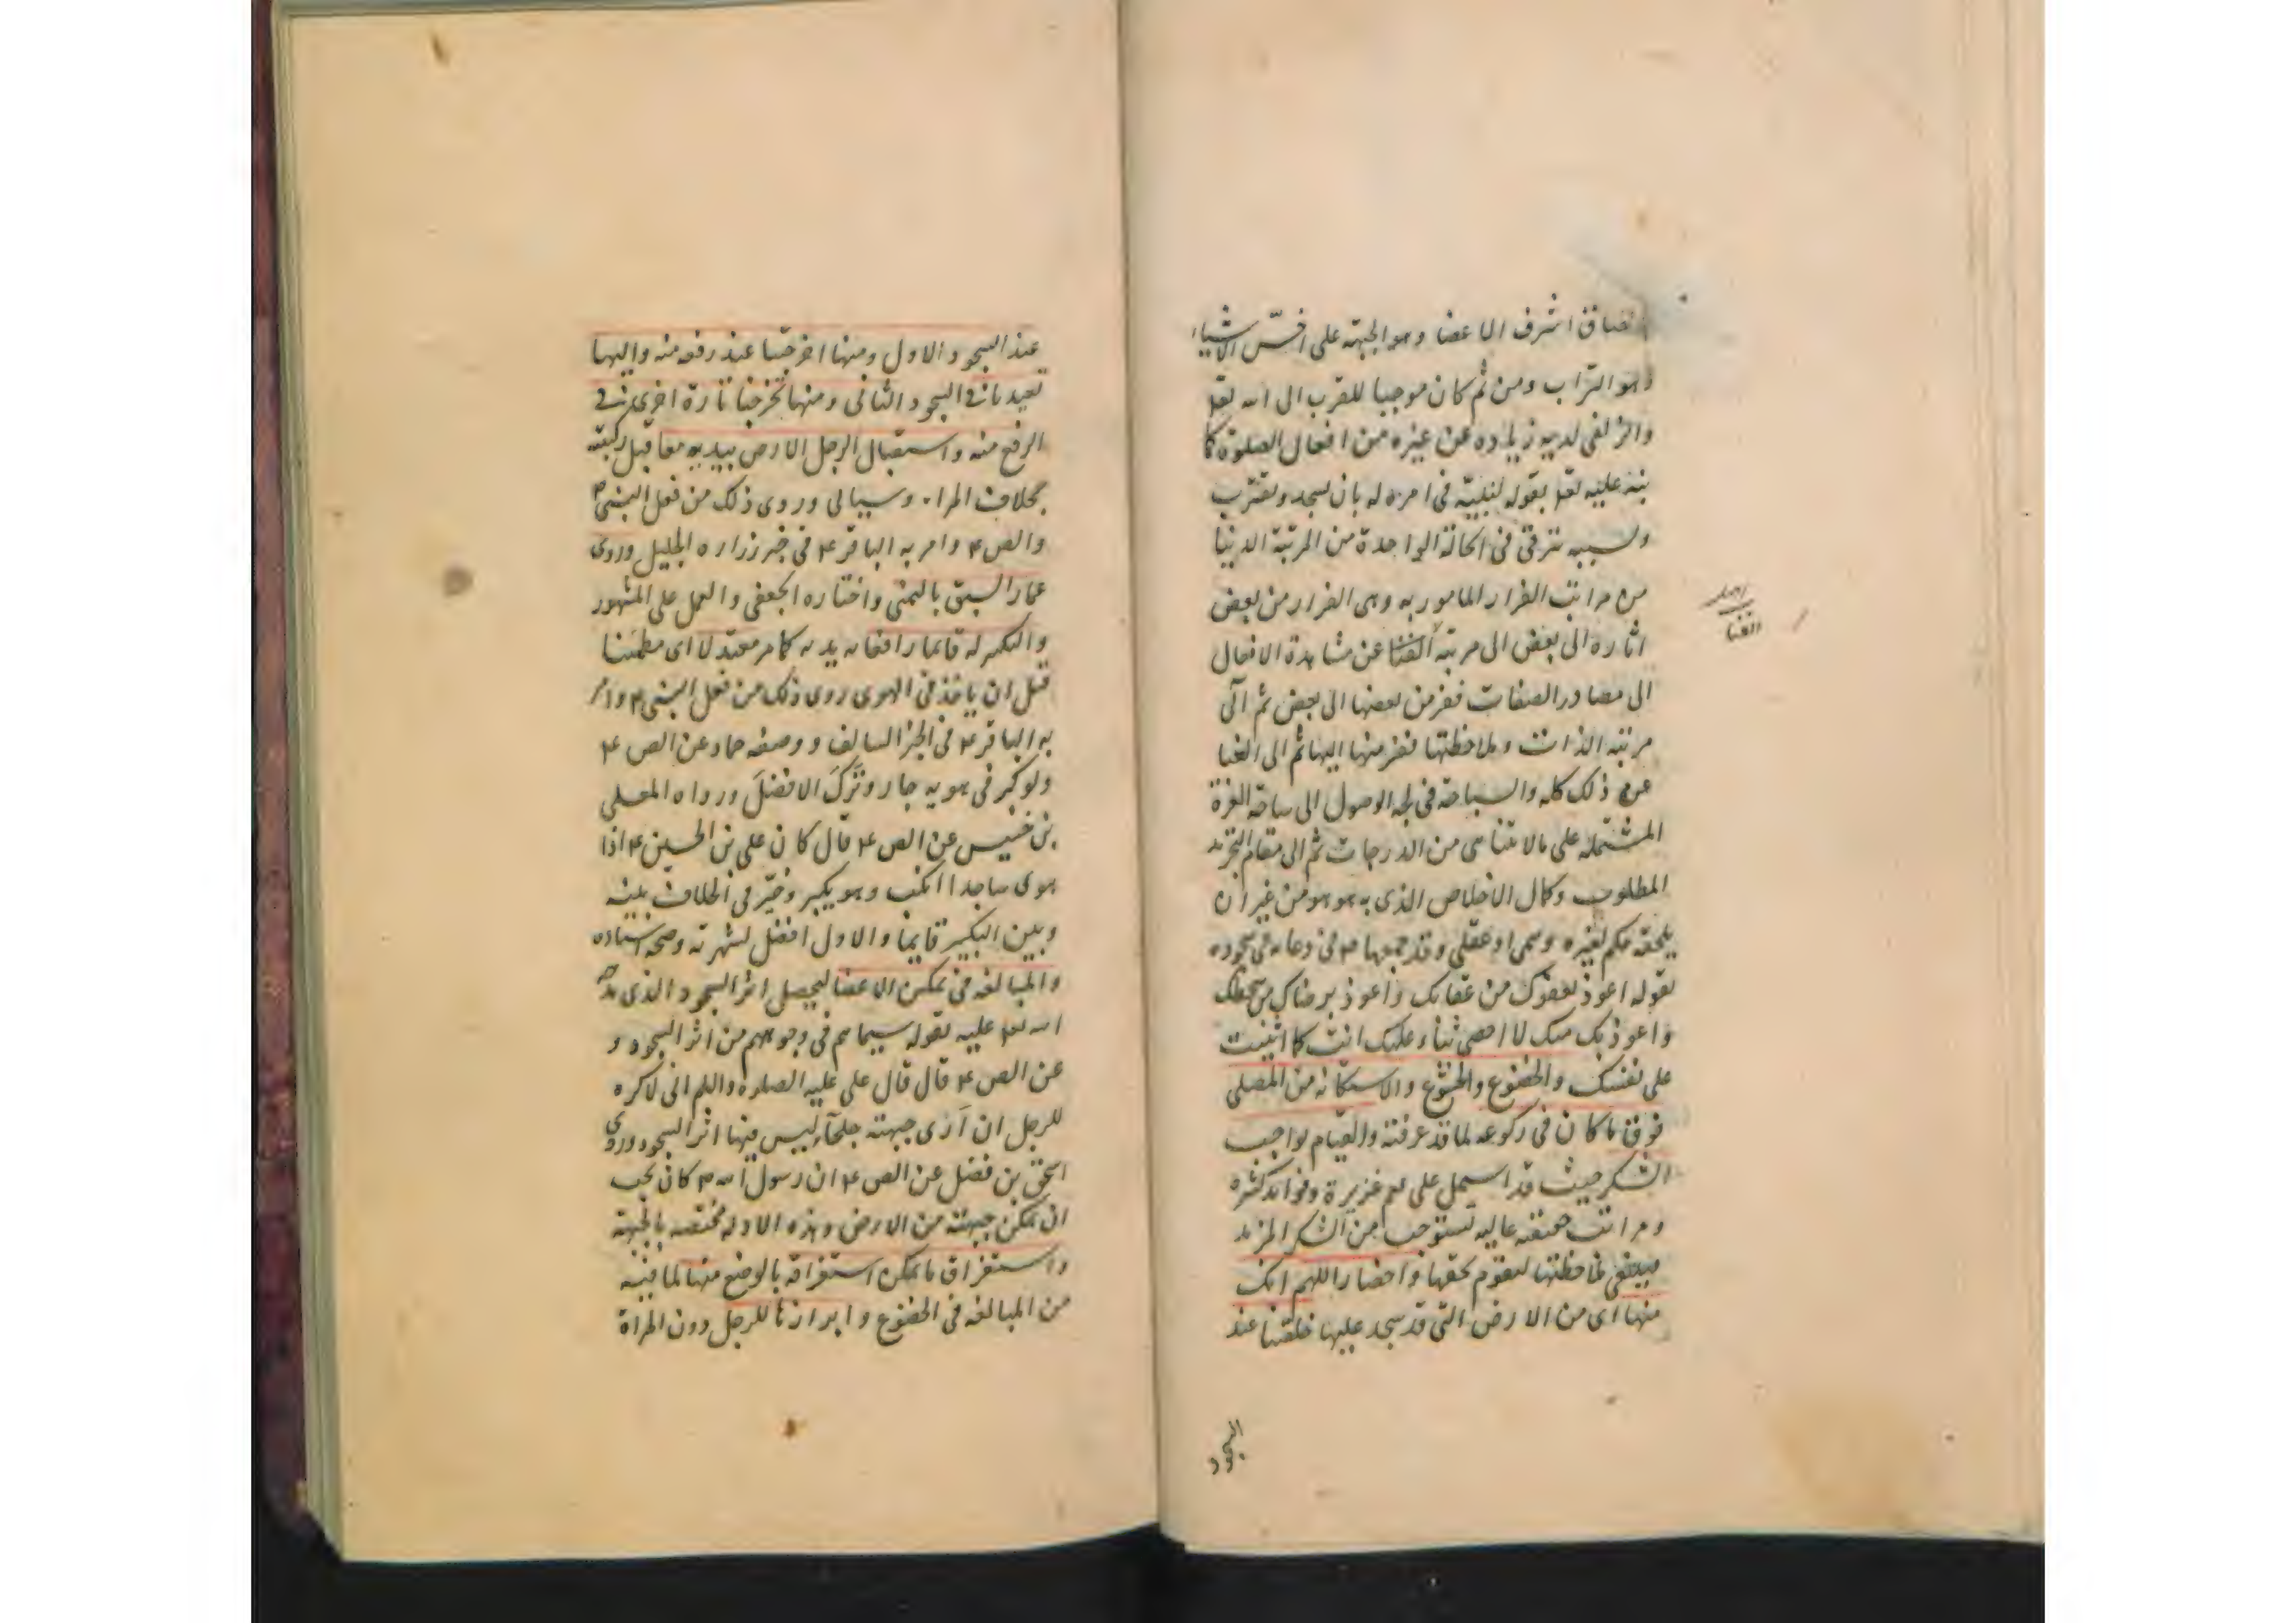 الصاق اشرف الاعضا وهو الجبهة على اخسّ الاشياء
وهو التراب ومن ثم كان موجبا للقرب الى الله تعا
والزلفى لديه زياده عن غيره من افعال الصلوة كما
نبه عليه تعا بقوله لنبيّه فى امره له بان يسجد ويقترب
وبسببه تترقى فى الحالة الواحدة من المرتبة الدنيا
من مراتب الفرار المامور به وهى الفرار من بعض
اثاره الى بعض الى مرتبة الفنا عن مشاهدة الافعال
الى مصادر الصفات ففر من بعضها الى بعض ثم الى
مرتبه الذات وملاحظتها ففر منها اليها ثم الى الفنا
عن ذلك كله والسباحة فى لجه الوصول الى ساحة العزة
المشتمله على مالا يتناهى من الدرجات ثم الى مقام التجريد
المطلوب وكمال الاخلاص الذى به هو هو من غير ان
يلحقه حكم لغيره وهمى او عقلى وقد جمعها ص فى دعائه فى سجوده
بقوله اعوذ بعفوك من عقابك واعوذ برضاك من سخطك
واعوذ بك منك لا احصى ثناء عليك انت كما اثنيت
على نفسك والخضوع والخشوع والاستكانه من المصلى
فوق ما كان فى ركوعه لما قد عرفته والقيام بواجب
الشكر حيث قد اشتمل على نعم غزيرة وفوائد كثيره
ومراتب حقيقه عاليه تستوجب من الشكر المزيد
فينبغى ملاحظتها ليقوم بحقها واحضار اللهم انك
منها اى من الارض التى قد سجد عليها خلقتنا عند
السجود
الفنا
عند السجود الاول ومنها اخرجتنا عند رفعه منه واليها
تعيدنا فى السجود الثانى ومنها تخرجنا تارة اخرى فى
الرفع منه واستقبال الرجل الارض بيديه معا قبل ركبتيه
بخلاف المراه وسياتى وروى ذلك من فعل النبى ص
والص ع وامر به الباقر ع فى خبر زراره الجليل وروى
عمار السبق باليمنى واختاره الجعفى والعمل على المشهور
والتكبير له قايما رافعا به يديه كما مر معتدلا اى مطمئنا
قبل ان ياخذ فى الهوى روى ذلك من فعل النبى ص وامر
به الباقر ع فى الخبر السالف ووصفه حماد عن الص ع
ولو كبر فى هويه جاز وتَرَكَ الافضلَ ورواه المعلى
بن خنيس عن الص ع قال كان على بن الحسين ع اذا
هوى ساجدا انكب وهو يكبر وخيّر فى الخلاف بينه
وبين التكبير قايما والاول افضل لشهرته وصحه اسناده
والمبالغه فى تمكين الاعضا ليحصل اثر السجود الذى مدح
الله تعا عليه بقوله سيماهم فى وجوههم من اثر السجود و
عن الص ع قال قال على عليه الصلوه والسلم انى لاكره
للرجل ان ارى جبهته جلحآء ليس فيها اثر السجود وروى
اسحق بن فضل عن الص ع ان رسول الله ص كان يحب
ان يمكن جبهته من الارض وهذه الادله مختصه بالجبهة
واستغراق ما يمكن استغراقه بالوضع منها لما فيه
من المبالغه فى الخضوع وابرازها للرجل دون المراة